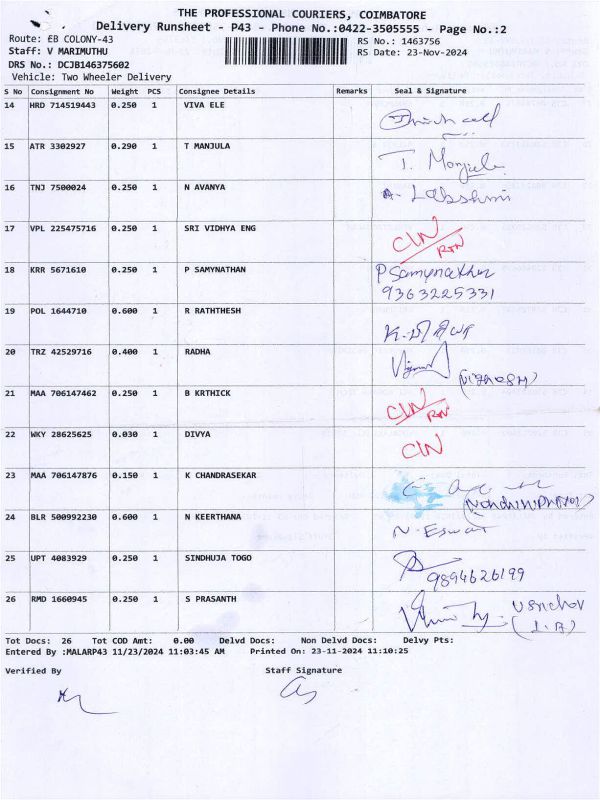 THE PROFESSIONAL COURIERS, COIMBATORE
Delivery Runsheet - P43 - Phone No.:0422-3505555 - Page No.:2
Route: EB COLONY-43 RS No.: 1463756
Staff: V MARIMUTHU RS Date: 23-Nov-2024
DRS No.: DCJB146375602
Vehicle: Two Wheeler Delivery
S No Consignment No Weight PCS Consignee Details Remarks Seal & Signature
14 HRD 714519443 0.250 1 VIVA ELE
15 ATR 3302927 0.290 1 T MANJULA T. Manjula
16 TNJ 7500024 0.250 1 N AVANYA A. Labshmi
17 VPL 225475716 0.250 1 SRI VIDHYA ENG CIN/RTN
18 KRR 5671610 0.250 1 P SAMYNATHAN P Samynathan
9363225331
19 POL 1644710 0.600 1 R RATHTHESH
20 TRZ 42529716 0.400 1 RADHA
21 MAA 706147462 0.250 1 B KRTHICK CIN/RTN
22 WKY 28625625 0.030 1 DIVYA CIN
23 MAA 706147876 0.150 1 K CHANDRASEKAR
24 BLR 500992230 0.600 1 N KEERTHANA N. Eswar
25 UPT 4083929 0.250 1 SINDHUJA TOGO 9894626199
26 RMD 1660945 0.250 1 S PRASANTH
Tot Docs: 26 Tot COD Amt: 0.00 Delvd Docs: Non Delvd Docs: Delvy Pts:
Entered By :MALARP43 11/23/2024 11:03:45 AM Printed On: 23-11-2024 11:10:25
Verified By Staff Signature